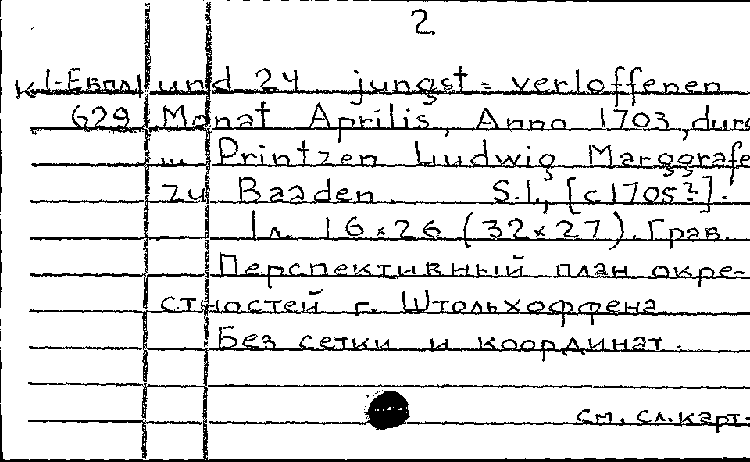 2
К1-Евпл und 24 jungst = verloffenen
629 Monat Aprilis, Anno 1703, durc
... Printzen Ludwig Marggrafe
zu Baaden. S.l., [c1705?].
1 л. 16×26 (32×27). Грав.
Перспективный план окре-
стностей г. Штольхоффена
Без сетки и координат.
см. сл. карт.